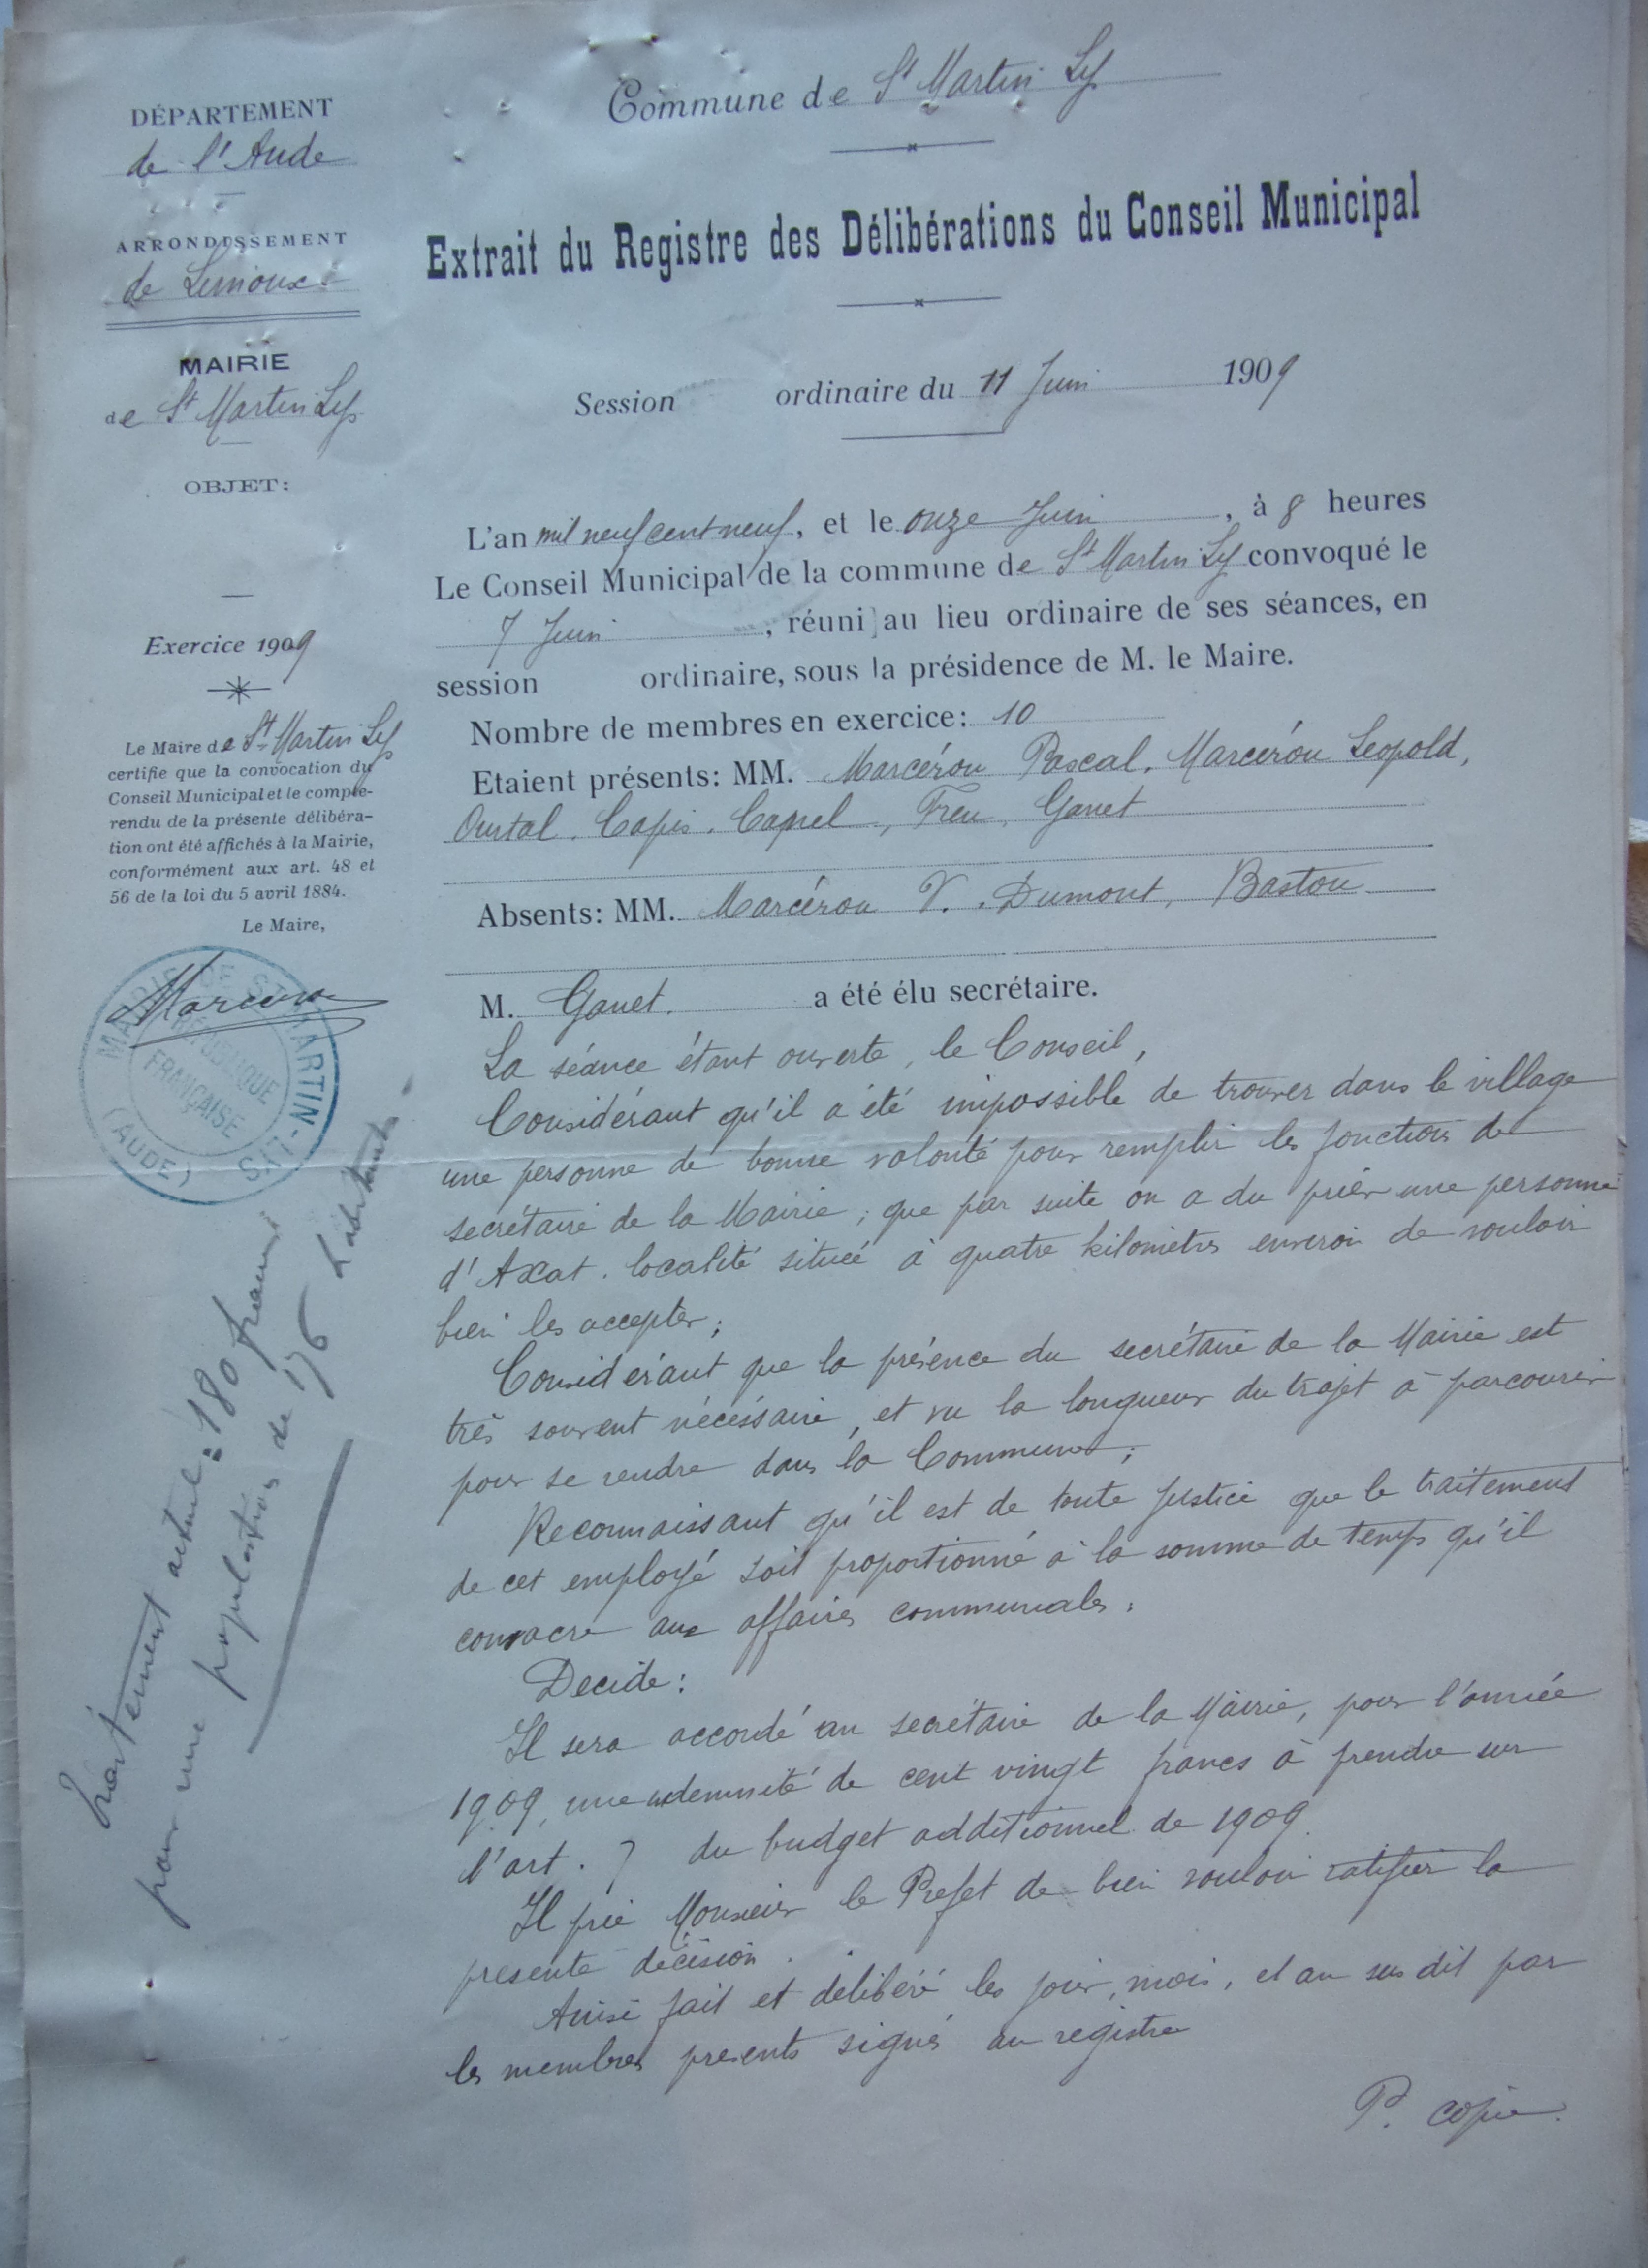 DÉPARTEMENT
de l'Aude
ARRONDISSEMENT
de Limoux
MAIRIE
de St Martin Lys
OBJET:
Exercice 1909
Le Maire de St Martin Lys
certifie que la convocation du
Conseil Municipal et le compte-
rendu de la présente délibéra-
tion ont été affichés à la Mairie,
conformément aux art. 48 et
56 de la loi du 5 avril 1884.
Le Maire,
MAIRIE DE ST MARTIN-LYS
(AUDE)
RÉPUBLIQUE
FRANÇAISE
Traitement actuel = 180 francs
pour une population de 176 habitants
Commune de St Martin Lys
Extrait du Registre des Délibérations du Conseil Municipal
Session ordinaire du 11 Juin 1909
L'an mil neuf cent neuf, et le onze Juin, à 8 heures
Le Conseil Municipal de la commune de St Martin Lys convoqué le
7 Juin, réuni au lieu ordinaire de ses séances, en
session ordinaire, sous la présidence de M. le Maire.
Nombre de membres en exercice: 10
Etaient présents: MM. Marcérou Pascal, Marcérou Leopold,
Ourtal, Capis, Capel, Treu, Ganet
Absents: MM. Marcérou V., Dumont, Bastou
M. Ganet. a été élu secrétaire.
La séance étant ouverte, le Conseil,
Considérant qu'il a été impossible de trouver dans le village
une personne de bonne volonté pour remplir les fonctions de
secrétaire de la Mairie; que par suite on a du prier une personne
d'Axat. localité située à quatre kilomètres environ de vouloir
bien les accepter;
Considérant que la présence du secrétaire de la Mairie est
très souvent nécéssaire, et vu la longueur du trajet à parcourir
pour se rendre dans la Commune;
Reconnaissant qu'il est de toute justice que le traitement
de cet employé soit proportionné à la somme de temps qu'il
consacre aux affaires communales:
Decide:
Il sera accordé au secrétaire de la Mairie, pour l'année
1909, une indemnité de cent vingt francs à prendre sur
l'art. 7 du budget additionnel de 1909.
Il prie Monsieur le Prefet de bien vouloir ratifier la
presente décision.
Ainsi fait et délibéré les jour, mois, et an sus dit par
les membres presents signés au registre
P. copie.